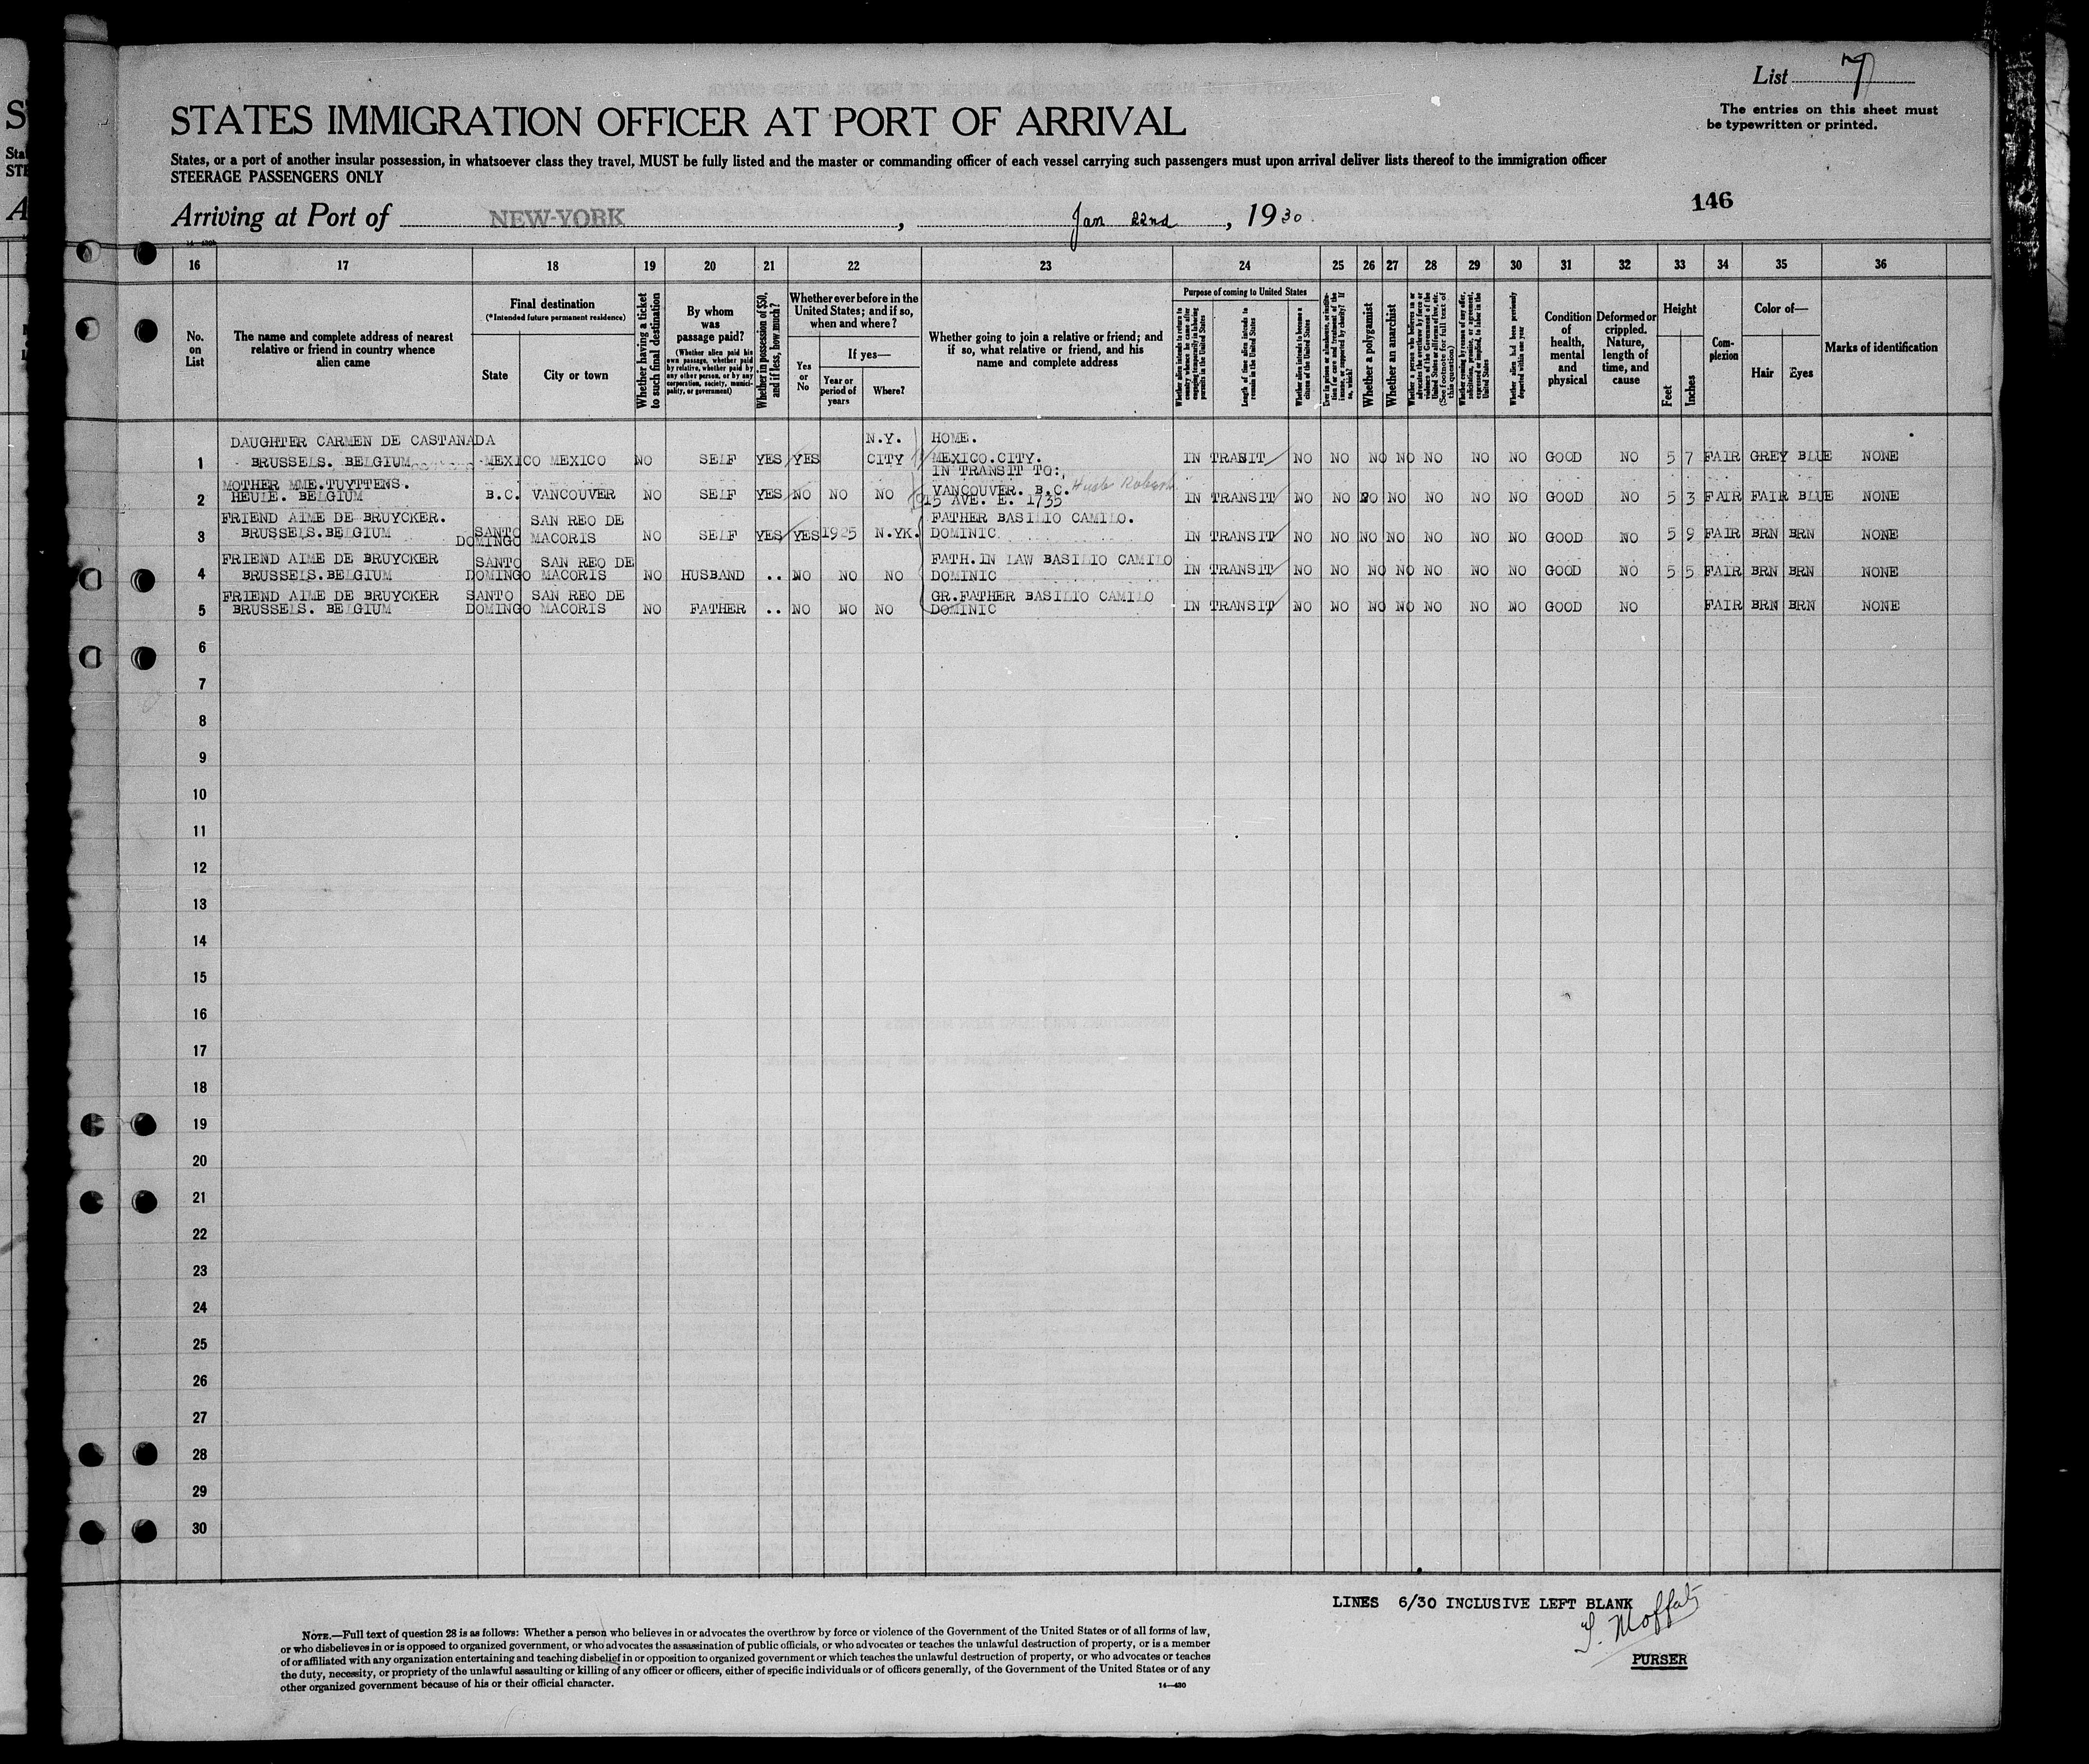 List 7
The entries on this sheet must
be typewritten or printed.
STATES IMMIGRATION OFFICER AT PORT OF ARRIVAL
States, or a port of another insular possession, in whatsoever class they travel, MUST be fully listed and the master or commanding officer of each vessel carrying such passengers must upon arrival deliver lists thereof to the immigration officer
STEERAGE PASSENGERS ONLY
146
Arriving at Port of NEW-YORK, Jan 22nd, 1930
16 17 18 19 20 21 22 23 24 25 26 27 28 29 30 31 32 33 34 35 36
No. on List
The name and complete address of nearest relative or friend in country whence alien came
Final destination
(*Intended future permanent residence)
State
City or town
Whether having a ticket to such final destination
By whom was passage paid?
(Whether alien paid his own passage, whether paid by relative, whether paid by any other person, or by any corporation, society, municipality, or government)
Whether in possession of $50, and if less, how much?
Whether ever before in the United States; and if so, when and where?
Yes or No
If yes—
Year or period of years
Where?
Whether going to join a relative or friend; and if so, what relative or friend, and his name and complete address
Purpose of coming to United States
Whether alien intends to return to country whence he came after engaging temporarily in laboring pursuits in the United States
Length of time alien intends to remain in the United States
Whether alien intends to become a citizen of the United States
Ever in prison or almshouse, or institution for care and treatment of the insane, or supported by charity? If so, which?
Whether a polygamist
Whether an anarchist
Whether a person who believes in or advocates the overthrow by force or violence of the Government of the United States or all forms of law, etc. (See footnote for full text of this question)
Whether coming by reason of any offer, solicitation, promise, or agreement, expressed or implied, to labor in the United States
Whether alien had been previously deported within one year
Condition of health, mental and physical
Deformed or crippled. Nature, length of time, and cause
Height
Feet
Inches
Complexion
Color of—
Hair
Eyes
Marks of identification
DAUGHTER CARMEN DE CASTANADA N.Y. HOME.
1 BRUSSELS. BELGIUM MEXICO MEXICO NO SELF YES YES CITY MEXICO.CITY. IN TRANSIT NO NO NO NO NO NO NO GOOD NO 5 7 FAIR GREY BLUE NONE
MOTHER MME.TUYTTENS. IN TRANSIT TO:
2 HEULE. BELGIUM B.C. VANCOUVER NO SELF YES NO NO NO VANCOUVER. B.C. IN TRANSIT NO NO NO NO NO NO NO GOOD NO 5 3 FAIR FAIR BLUE NONE
15 AVE. E. 1735
FRIEND AIME DE BRUYCKER. SAN REO DE FATHER BASILIO CAMILO.
3 BRUSSELS.BELGIUM SANTO DOMINGO MACORIS NO SELF YES YES 1925 N.YK. DOMINIC IN TRANSIT NO NO NO NO NO NO NO GOOD NO 5 9 FAIR BRN BRN NONE
FRIEND AIME DE BRUYCKER SANTO SAN REO DE FATH.IN LAW BASILIO CAMILO
4 BRUSSELS.BELGIUM DOMINGO MACORIS NO HUSBAND .. NO NO NO DOMINIC IN TRANSIT NO NO NO NO NO NO NO GOOD NO 5 5 FAIR BRN BRN NONE
FRIEND AIME DE BRUYCKER SANTO SAN REO DE GR.FATHER BASILIO CAMILO
5 BRUSSELS. BELGIUM DOMINGO MACORIS NO FATHER .. NO NO NO DOMINIC IN TRANSIT NO NO NO NO NO NO NO GOOD NO FAIR BRN BRN NONE
6
7
8
9
10
11
12
13
14
15
16
17
18
19
20
21
22
23
24
25
26
27
28
29
30
LINES 6/30 INCLUSIVE LEFT BLANK
Moffat
PURSER
NOTE.—Full text of question 28 is as follows: Whether a person who believes in or advocates the overthrow by force or violence of the Government of the United States or of all forms of law,
or who disbelieves in or is opposed to organized government, or who advocates the assassination of public officials, or who advocates or teaches the unlawful destruction of property, or is a member
of or affiliated with any organization entertaining and teaching disbelief in or opposition to organized government or which teaches the unlawful destruction of property, or who advocates or teaches
the duty, necessity, or propriety of the unlawful assaulting or killing of any officer or officers, either of specific individuals or of officers generally, of the Government of the United States or of any
other organized government because of his or their official character.
14—430